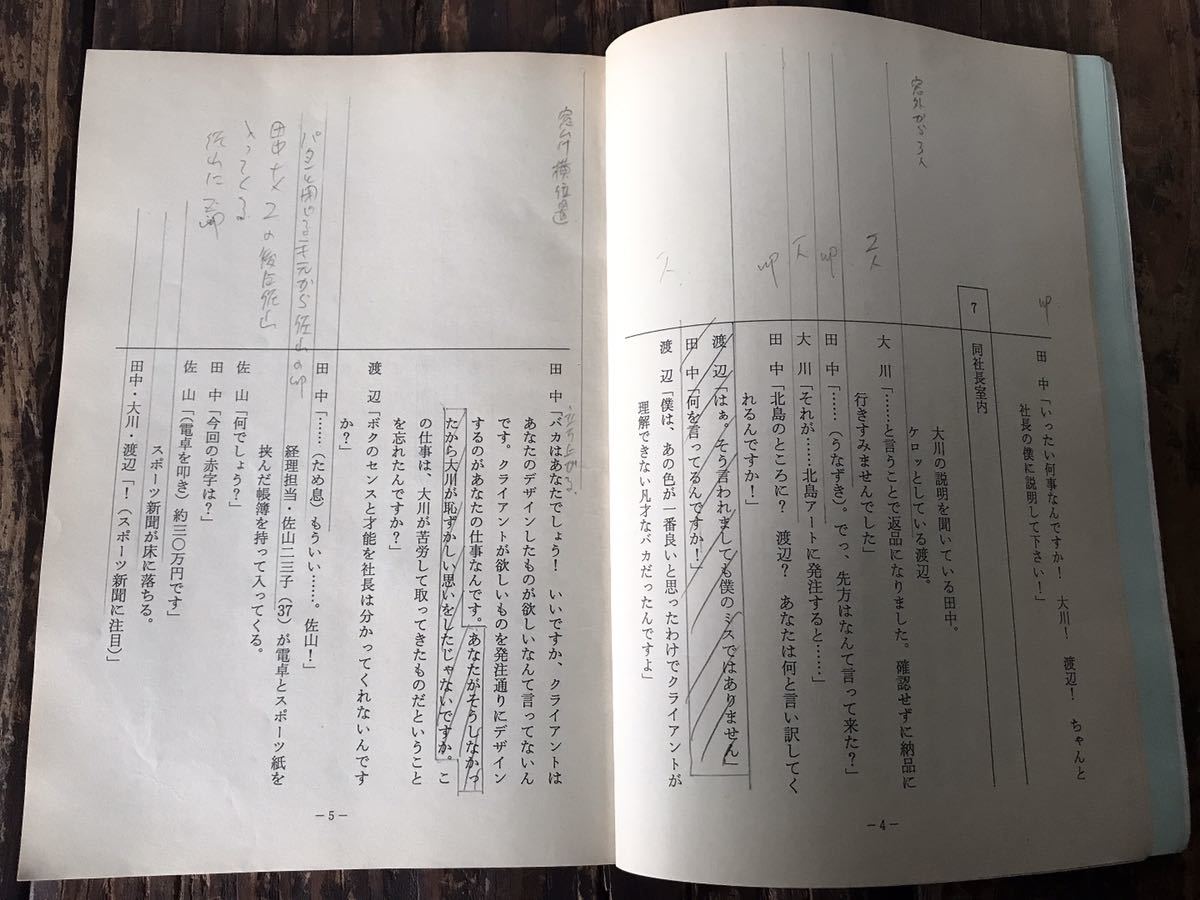 up
田中「いったい何事なんですか！　大川！　渡辺！　ちゃんと
社長の僕に説明して下さい！」
7　同社長室内
大川の説明を聞いている田中。
窓外から3人
ケロッとしている渡辺。
大川「……と言うことで返品になりました。確認せずに納品に
行きすみませんでした」
2人
田中「……（うなずき）。でっ、先方はなんて言って来た？」
up
大川「それが……北島アートに発注すると……」
田中「北島のところに？　渡辺？　あなたは何と言い訳してく
up
れるんですか！」
渡辺「はぁ。そう言われましても僕のミスではありません」
田中「何を言ってるんですか！」
渡辺「僕は、あの色が一番良いと思ったわけでクライアントが
理解できない凡才なバカだったんですよ」
―4―
田中「バカはあなたでしょう！　いいですか、クライアントは
立ち上がる
あなたのデザインしたものが欲しいなんて言ってないん
です。クライアントが欲しいものを発注通りにデザイン
するのがあなたの仕事なんです。あなたがそうしなかっ
たから大川が恥ずかしい思いをしたじゃないですか。こ
の仕事は、大川が苦労して取ってきたものだということ
を忘れたんですか？」
渡辺「ボクのセンスと才能を社長は分かってくれないんです
か？」
田中「……（ため息）もういい……。佐山！」
経理担当・佐山二三子（37）が電卓とスポーツ紙を
挟んだ帳簿を持って入ってくる。
佐山「何でしょう？」
田中「今回の赤字は？」
佐山「（電卓を叩き）約三〇万円です」
スポーツ新聞が床に落ちる。
田中・大川・渡辺「！（スポーツ新聞に注目）」
―5―